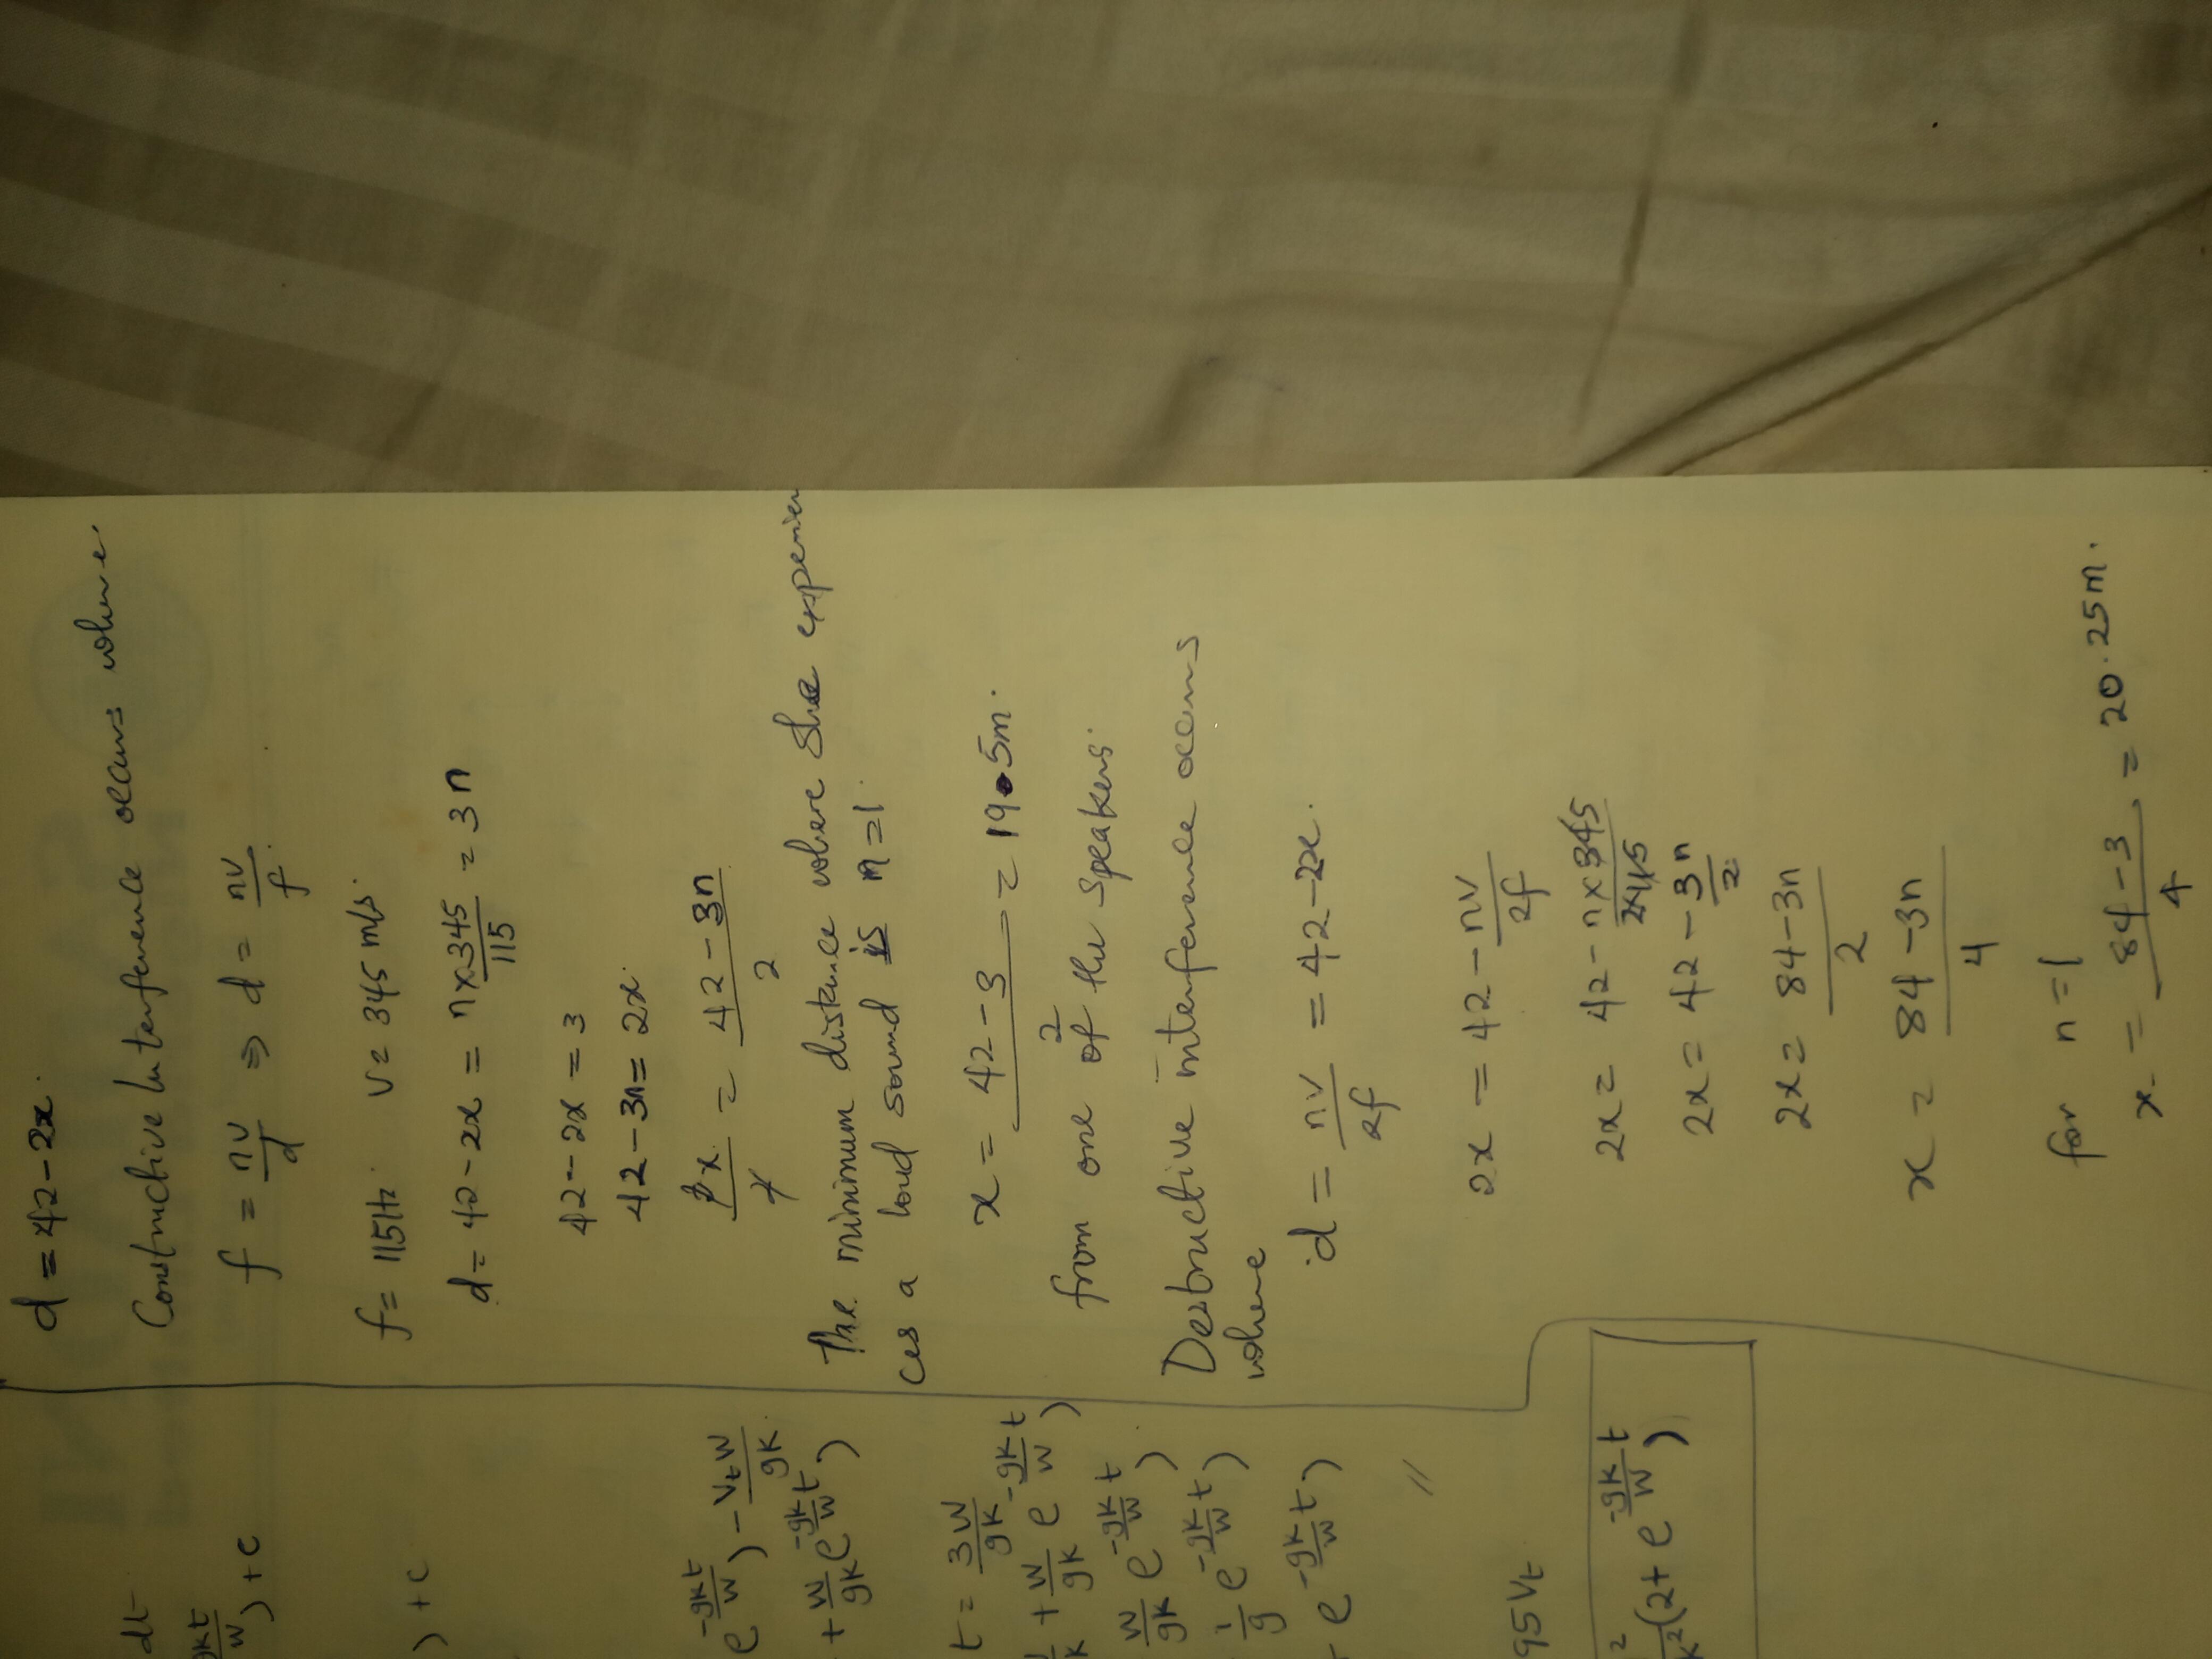 d = 42 - 2x.
Constructive Interference occurs where
f = nv/d ⇒ d = nv/f.
f = 115Hz. v = 345 m/s.
d = 42 - 2x = n×345/115 = 3n
42 - 2x = 3
42 - 3n = 2x.
2x/2 = 42 - 3n/2
The minimum distance where she experien
ces a loud sound is n = 1.
x = 42 - 3/2 = 19.5m.
from one of the speakers.
Destructive interference occurs
where
d = nv/2f = 42 - 2x.
2x = 42 - nv/2f
2x = 42 - n×345/2×115
2x = 42 - 3n/2
2x = 84 - 3n/2
x = 84 - 3n/4
for n = 1
x = 84 - 3/4 = 20.25m.
dt
gkt/w) + c
) + c
e^(-gkt/w) - VtW/gk
+ w/gk e^(-gk/w t)
t = 3W/gk
k + w/gk e^(-gk/w t)
w/gk e^(-gk/w t)
1/g e^(-gk/w t)
e^(-gk/w t)
//
95Vt
2/k²(2 + e^(-gk/w t))